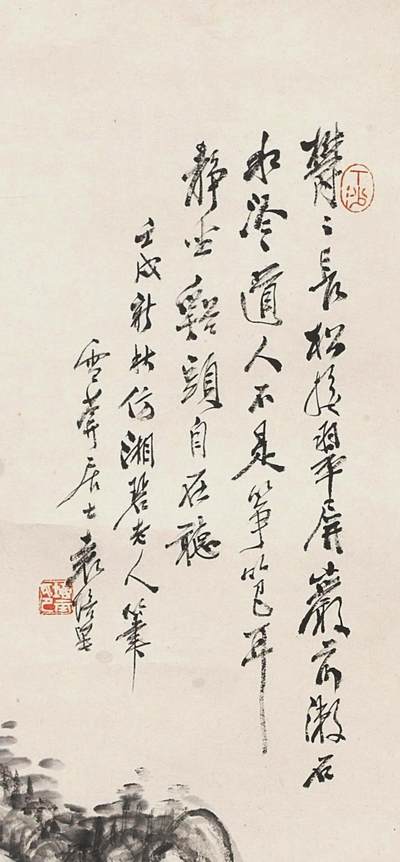 鬱〻長松接翠屏巖前漱石
水泠〻道人不是箏笆耳
靜坐谿頭自在聽
壬戌新秋仿湘碧老人筆
雪葊居士袁培基